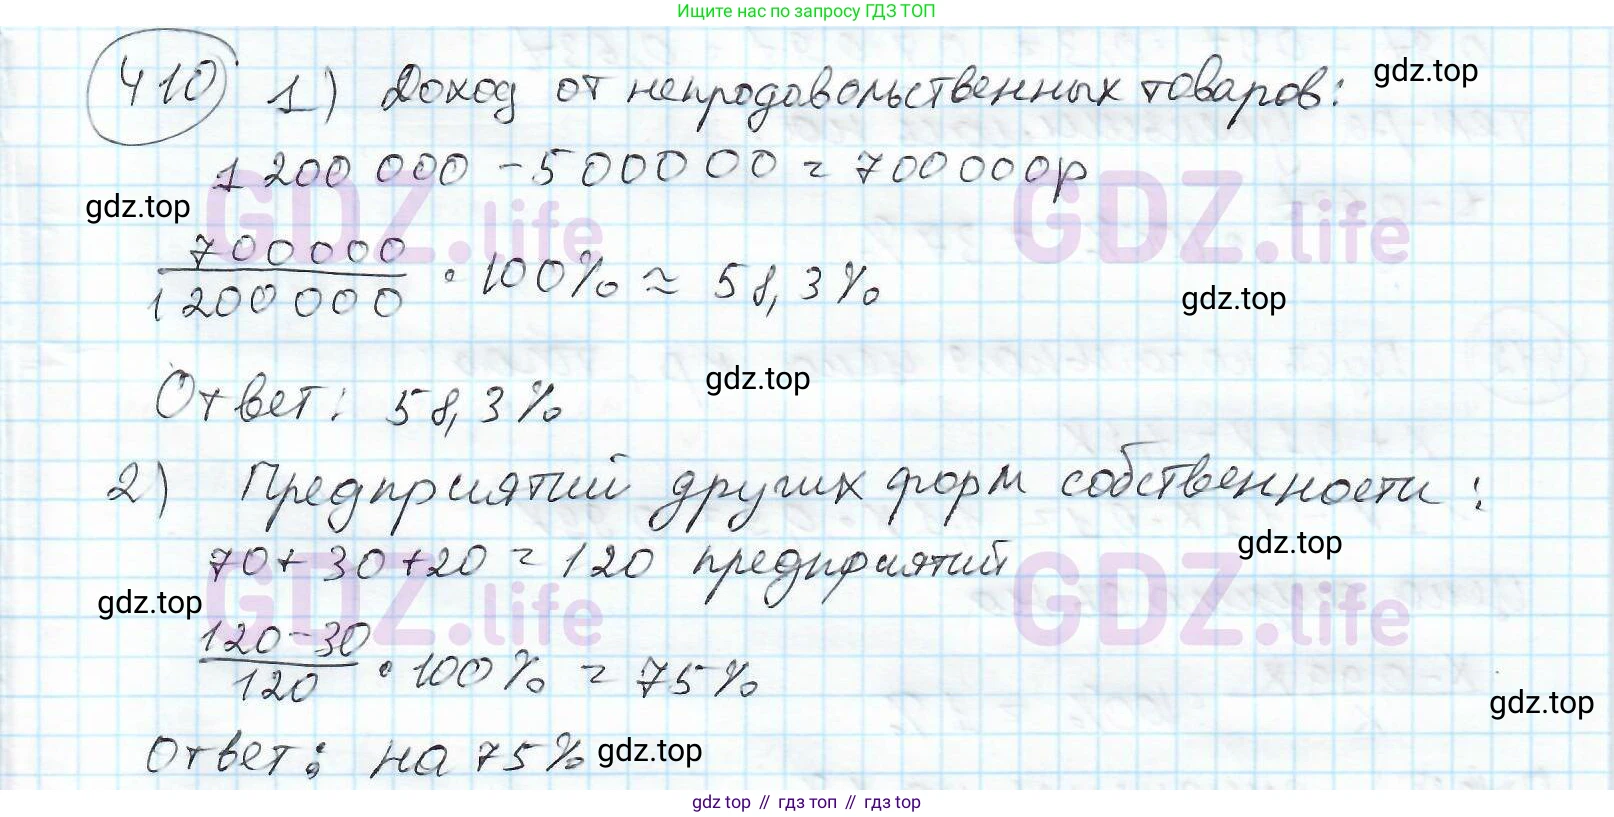 Ищите нас по запросу ГДЗ ТОП
410 1) Доход от непродовольственных товаров: gdz.top
1 200 000 - 500 000 = 700 000 р
gdz.top GDZ.life GDZ.life
700000
/ 1 200 000 · 100% ≈ 58,3% gdz.top
Ответ: 58,3% gdz.top
2) Предприятий других форм собственности:
70 + 30 + 20 = 120 предприятий gdz.top
gdz.top GDZ.life GDZ.life
120 - 30
/ 120 · 100% = 75% gdz.top
Ответ: на 75% gdz.top
gdz top // гдз топ // гдз top